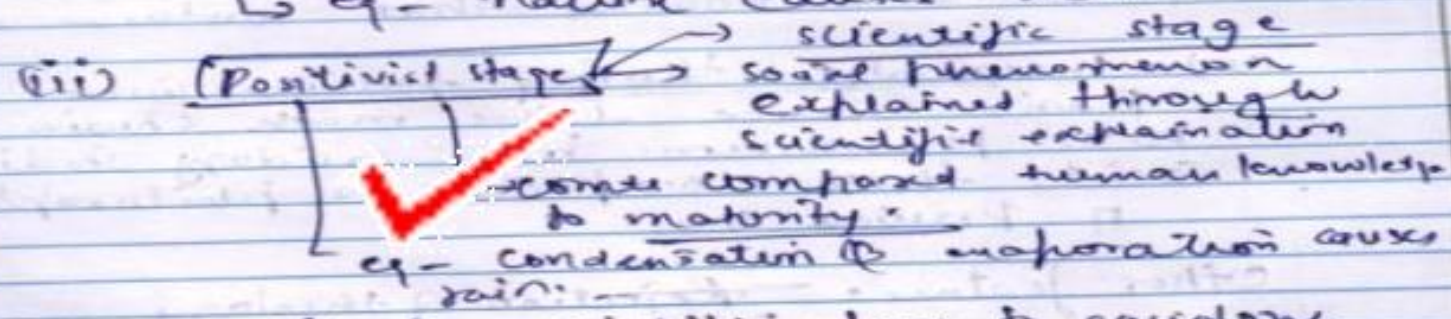 ↳ eg - Nature causes
(iii) (Positivist stage → scientific stage
→ social phenomenon
explained through
scientific explaination
→ comte compared human knowledge
to maturity.
eg - condensation & evaporation causes
rain.
to